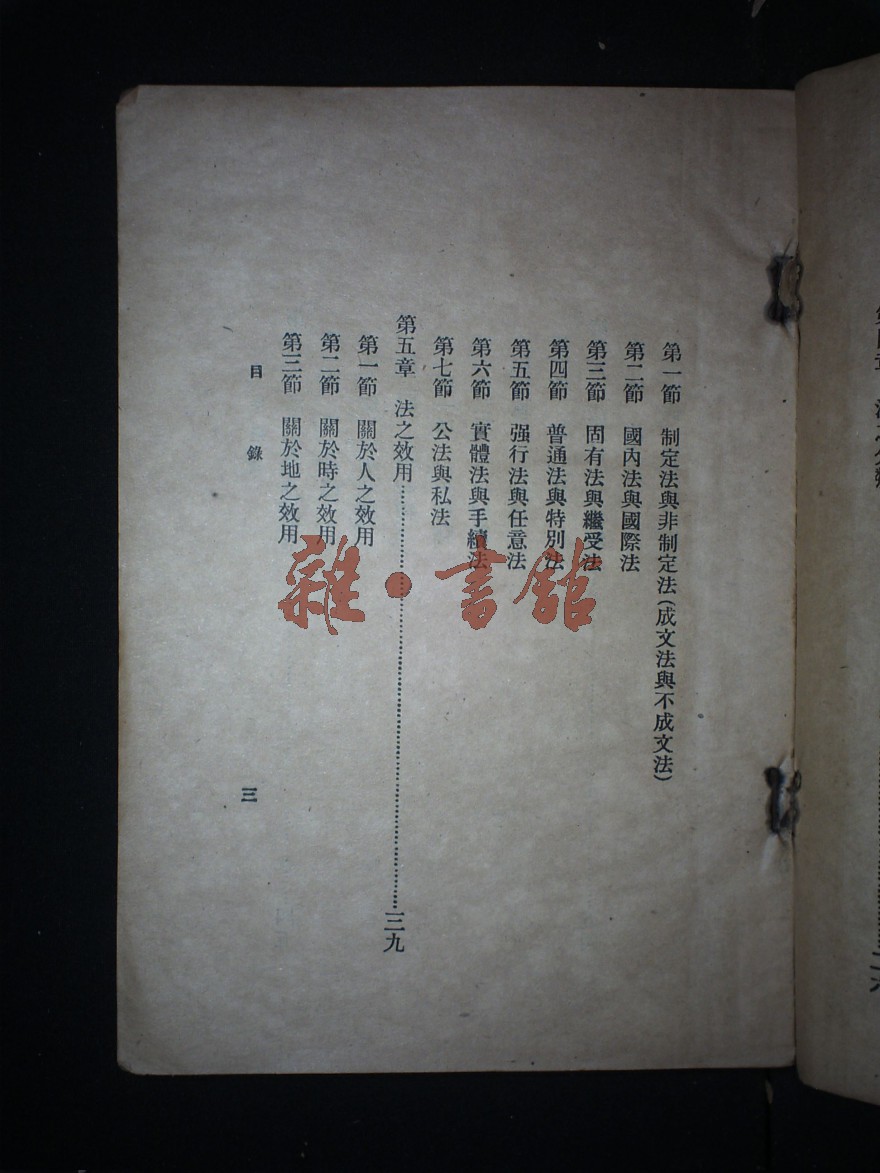 第一節　制定法與非制定法（成文法與不成文法）
第二節　國內法與國際法
第三節　固有法與繼受法
第四節　普通法與特別法
第五節　强行法與任意法
第六節　實體法與手續法
第七節　公法與私法
第五章　法之效用……三九
第一節　關於人之效用
第二節　關於時之效用
第三節　關於地之效用
目　錄　三
雜·書館